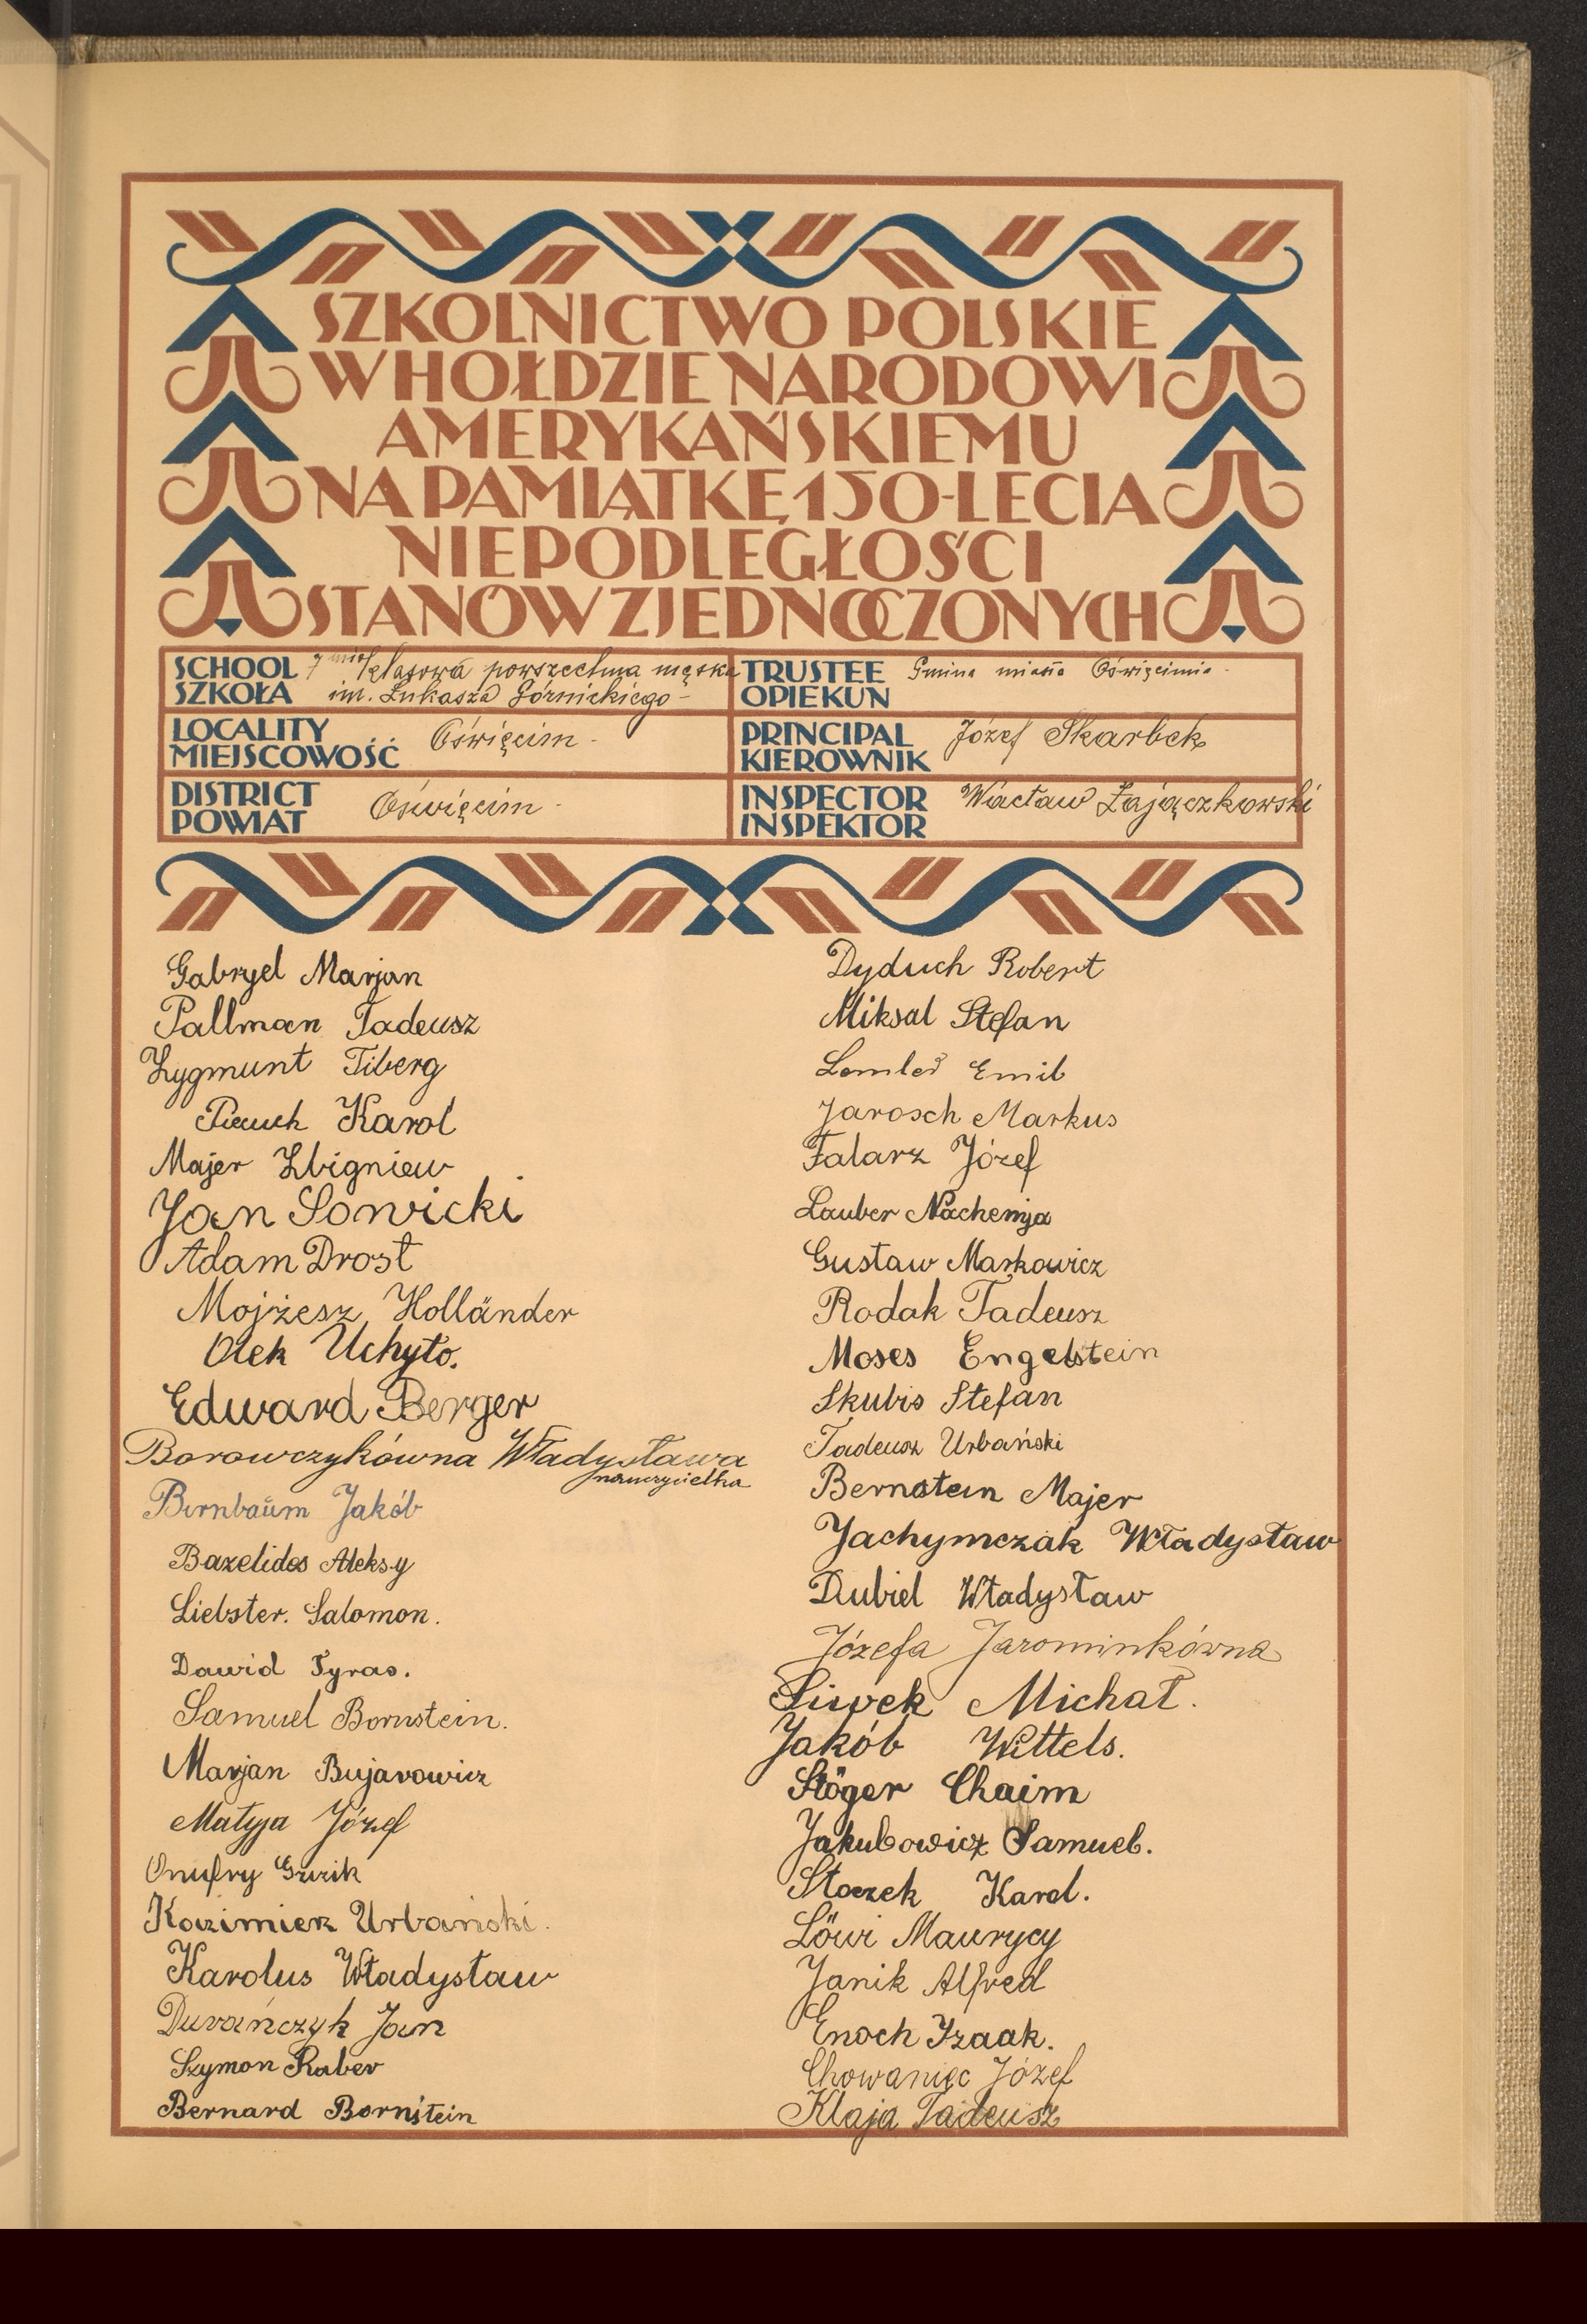 SZKOLNICTWO POLSKIE
W HOŁDZIE NARODOWI
AMERYKAŃSKIEMU
NA PAMIĄTKĘ 150-LECIA
NIEPODLEGŁOŚCI
STANÓW ZJEDNOCZONYCH
SCHOOL 7 mio klasowa powszechna męska
SZKOŁA im. Łukasza Górnickiego
LOCALITY
MIEJSCOWOŚĆ Oświęcim
DISTRICT
POWIAT Oświęcim
TRUSTEE Gmina miasta Oświęcimia
OPIEKUN
PRINCIPAL Józef Skarbek
KIEROWNIK
INSPECTOR Wacław Zajączkowski
INSPEKTOR
Gabryel Marjan
Pallman Tadeusz
Zygmunt Tiberg
Karol
Majer Zbigniew
Jan Sowicki
Adam Drost
Mojżesz Holländer
Olek Uchyło.
Edward Berger
Borowczykówna Władysława
nauczycielka
Birnbaum Jakób
Bazelides Aleksy
Liebster. Salomon.
Dawid Tyras.
Samuel Bornstein.
Marjan Bujarowicz
Matyja Józef
Onufry
Kazimierz Urbański.
Karolus Władysław
Durańczyk Jan
Szymon Raber
Bernard Bornstein
Dyduch Robert
Miksal Stefan
Lemler Emil
Jarosch Markus
Falarz Józef
Lauber Nachemja
Gustaw Markowicz
Rodak Tadeusz
Moses Engelstein
Skubis Stefan
Tadeusz Urbański
Bernstein Majer
Jachymczak Władysław
Dubiel Władysław
Józefa Jarominkówna
Siwek Michał.
Jakób Wittels.
Stöger Chaim
Jakubowicz Samuel.
Stoczek Karol.
Löwi Maurycy
Janik Alfred
Enoch Izaak.
Chowaniec Józef
Klaja Tadeusz